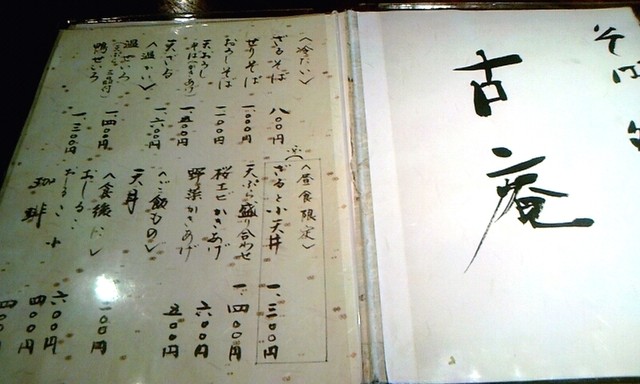 そば
古庵
〈冷たい〉
ざるそば 八〇〇円
せりそば 一、〇〇〇円
おろしそば 一、一〇〇円
天おろし
そば(かきあげ) 一、五〇〇円
天ざる 一、六〇〇円
〈温かい〉
温せいろ 一、四〇〇円
鴨せいろ 一、三〇〇円
〈昼食限定〉
ざると小天丼 一、三〇〇円
天ぷら盛り合わせ 一、四〇〇円
桜エビかきあげ 六〇〇円
野菜かきあげ 五〇〇円
〈ご飯もの〉
天丼
〈食後に〉
おしるこ 六〇〇円
珈琲 四〇〇円